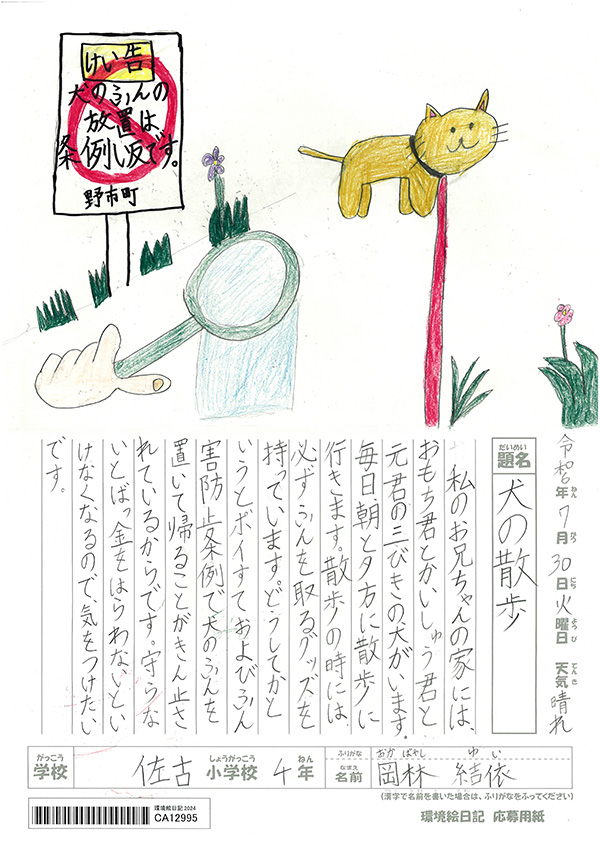 けい告
犬のふんの
放置は
条例い反です。
野市町
令和6年7月30日火曜日 天気晴れ
ねん がつ にち ようび てんき
だいめい
題名
犬の散歩
私のお兄ちゃんの家には、
おもち君とかいしゅう君と
元君の三びきの犬がいます。
毎日、朝と夕方に散歩に
行きます。散歩の時には
必ずふんを取るグッズを
持っています。どうしてかと
いうとポイすておよびふん
害防止条例で犬のふんを
置いて帰ることがきん止さ
れているからです。守らな
いとばっ金をはらわないとい
けなくなるので、気をつけたい
です。
がっこう しょうがっこう ねん ふりがな おかばやし ゆい
学校 佐古小学校 4年 なまえ 名前 岡林 結依
(漢字で名前を書いた場合は、ふりがなをふってください)
環境絵日記 2024
CA12995
環境絵日記 応募用紙